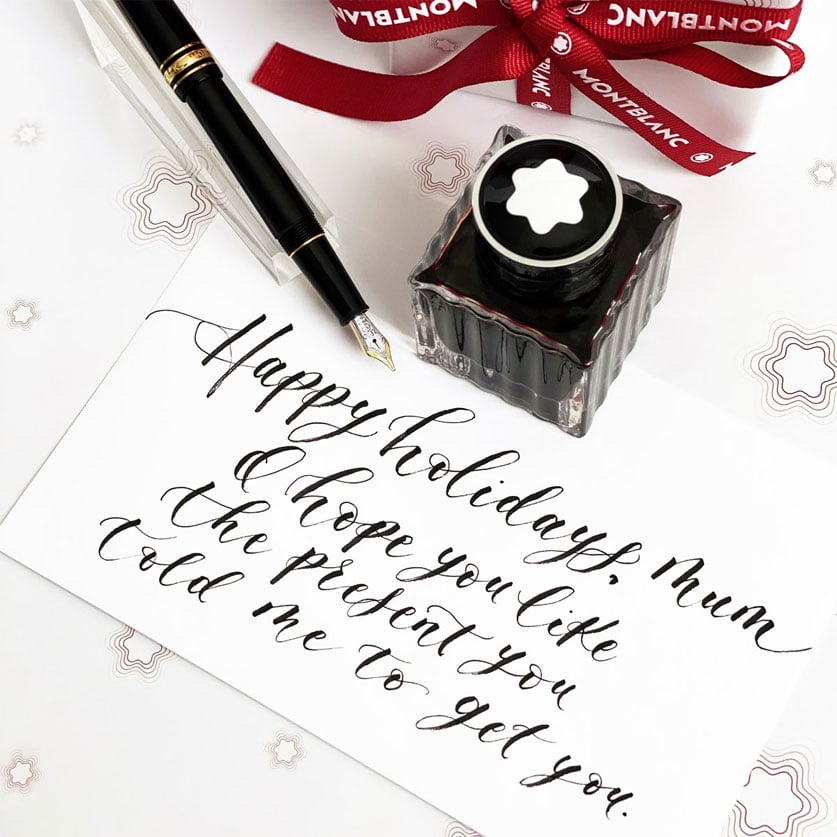 MONTBLANC
MONTBLANC
MONTBLANC
MONTBLANC
Happy holidays, mum
I hope you like
the present you
told me to get you.